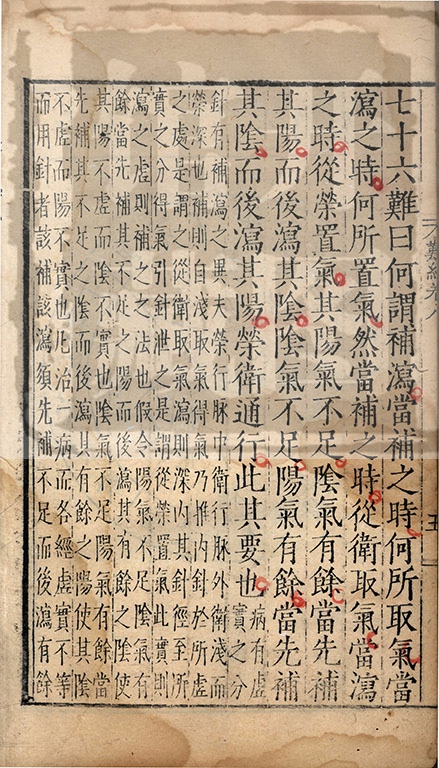 七十六難曰何謂補瀉當補之時何所取氣當
瀉之時何所置氣然當補之時從衛取氣當瀉
之時從榮置氣其陽氣不足陰氣有餘當先補
其陽而後瀉其陰陰氣不足陽氣有餘當先補
其陰而後瀉其陽榮衛通行此其要也
病有虛
實之分
針有補瀉之異夫榮行脉中衛行脉外衛淺而
榮深也補則自淺取氣得氣乃推內針於所虛
之處是謂之從衛取氣瀉則深內其針徑至所
實之分得氣引針泄之是謂從榮置氣此實則
瀉之虛則補之之法也假令陽氣不足陰氣有
餘當先補其不足之陽而後瀉其有餘之陰使
其陽不虛而陰不實也陰氣不足陽氣有餘當
先補其不足之陰而後瀉其有餘之陽使其陰
不虛而陽不實也凡治一病而各經虛實不等
而用針者該補該瀉須先補不足而後瀉有餘
難經卷八
五